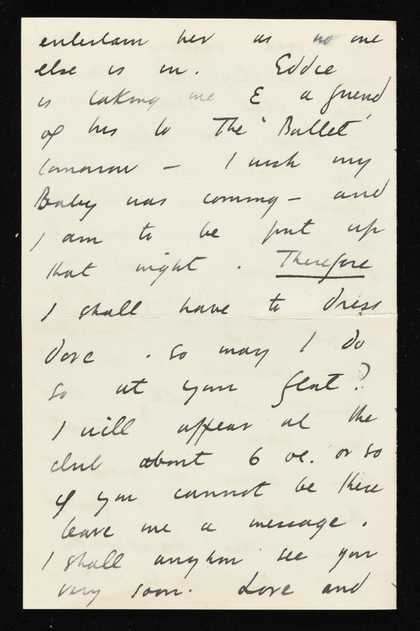 entertain her as no one
else is in. Eddie
is taking me & a friend
of his to The 'Ballet'
tomorrow – I wish my
Baby was coming – and
I am to be put up
that night. Therefore
I shall have to dress
Dove. So may I do
so at your flat?
I will appear at the
club about 6 oc. or so
if you cannot be there
leave me a message.
I shall anyhow see you
very soon. Love and